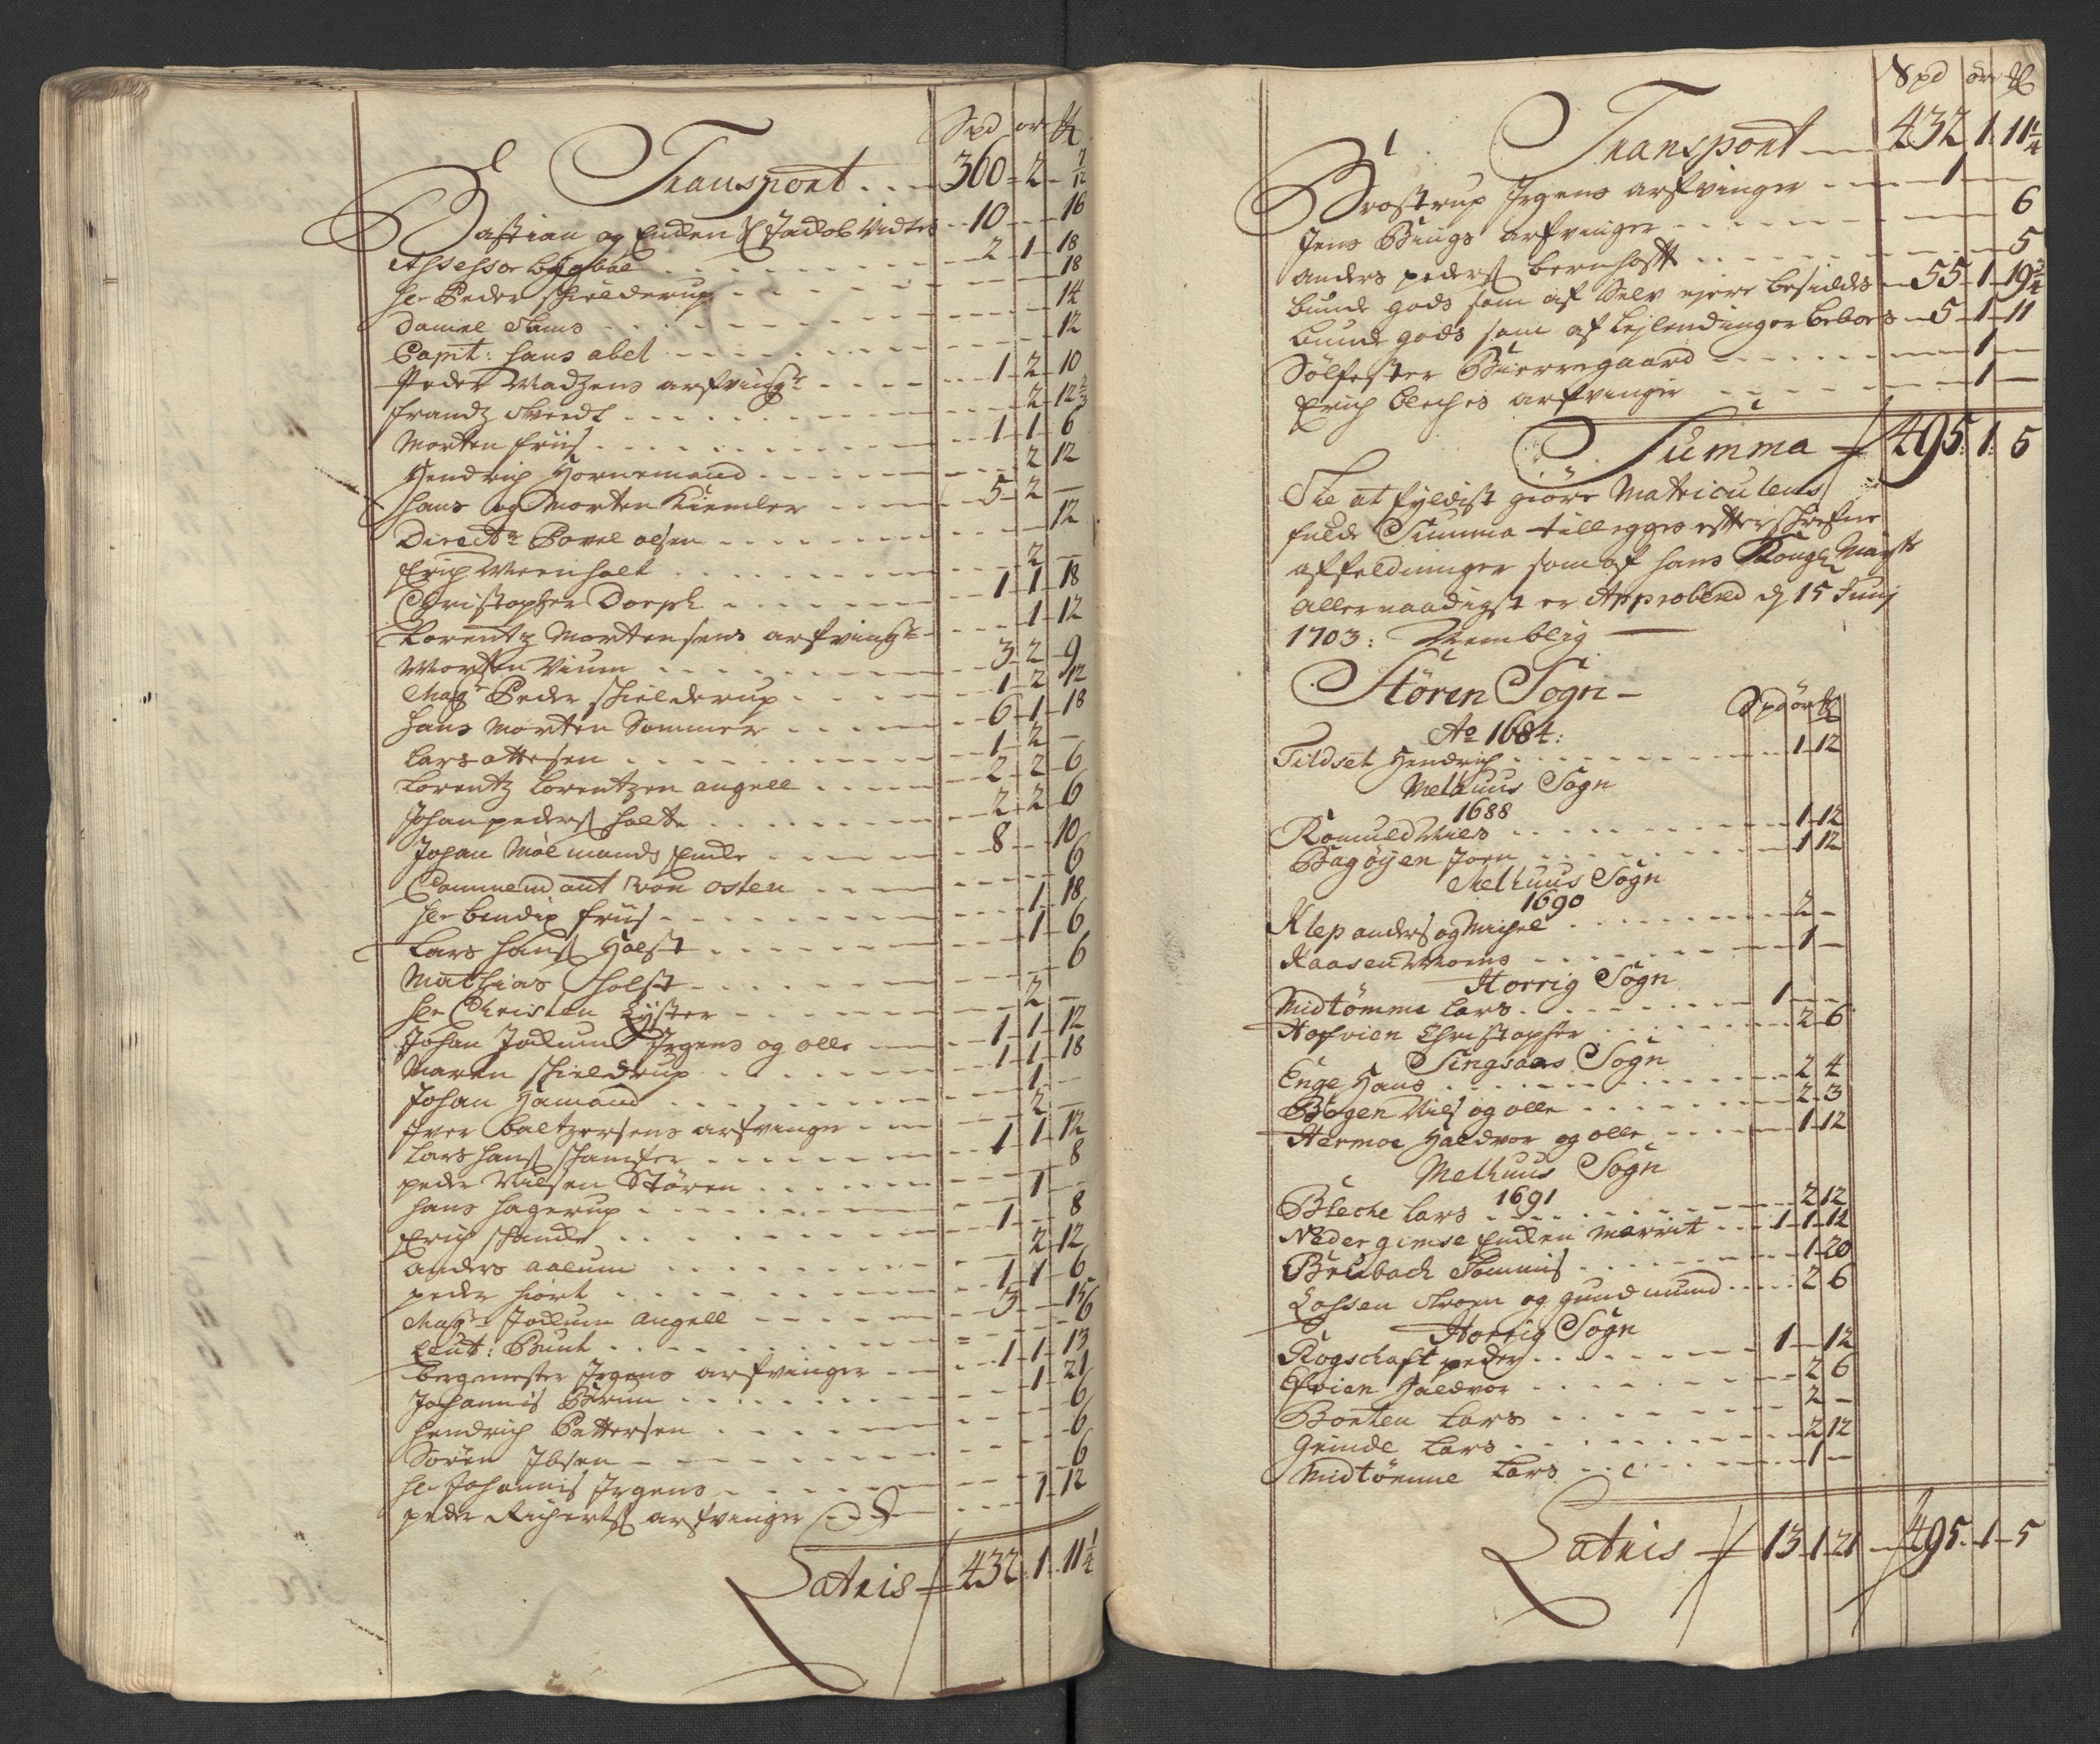 Spd ør ℔
Transport 360 - 2 - 7/12
Bastian og Enchen Sl Jacob Nidters 10 - - 16
Assessor bygbal 2 - 1 - 18
Hr Peder schielderup 18
Daniel Tams 14
Capit: hans abel 12
Peder Madzens arfving 1 - 2 - 10
Frandz Skeedt 2 - 12 2/3
Morten friis 1 - 1 - 6
Hendrich Hornemand 2 12
Hans og Morten Kiemler 5 - 2 -
Direct Povel olsen 12
Erich Meenholt 2 -
Christopher Dorph 1 - 1 - 18
Lorentz Mortensens arfving 1 - 12
Morten Vium 3 - 2 - 9
Mag Peder schielderup 1 - 2 - 12
Hans Morten Sommer 6 - 1 - 18
Lars ottesen 1 - 2 -
Lorentz Lorentzen angell 2 - 2 - 6
Johan peders holte 2 - 2 - 6
Johan Mølmands Encke 8 - - 10
Commendant von osten 6
Hr bendix friis 1 - 18
Lars hans Holst 1 - 6
Mathias Holst 6
Hr Christen Lyster 2 -
Johan Jochum Irgens og olle 1 - 1 - 12
Maren schieldrup 1 - 1 - 18
Johan Hamand 1 -
Iver baltzersens arfvinge 2 -
Lars hans schancke 1 - 1 - 12
peder Nilsen Støren 8
hans hagerup 1 -
Erich schancke 1 - - 8
anders aalum 2 - 12
peder hiort 1 - 1 - 6
Mag Jochum Angell 3 - - 15
Leut: Bunt 6
bergmester Irgens arfvinger 1 - 1 - 13
Johannis Brun 1 - 21
Hendrich Pettersen 6
Søren Ibsen 6
Hr Johannis Irgens 6
peder Richerts arfvinger 1 - 12
Latris 432 - 1 - 11 1/4
Spd ør ℔
Transport 432 1: 11 1/4
Brostrup Irgens arfvinger 1
Jens Bings arfvinger 6
anders peders bernhoft 5
bunde gods som af Selv ejere besiddes 55 - 1 - 19 3/4
bunde gods som af lejlendinger beboes 5 - 1 - 11
Sølfester Bierregaard 1 -
Erich bleches arfvinger 1 -
Summa 495: 1: 5
Till at fyldist giøre Matriculens
fulde Summa tillegges efterschrefne
affeldninger som af hans Kongl Mayts
allernaadigst er Approbered d 15 Junj
1703: Nemblig
Støren Sogn
Spd ør ℔
Ao 1684:
Tildset Hendrich 1 - 12
Melhuus Sogn
1688
Romuld Niels 1 - 12
Bagøyen Joen 1 12
Melhuus Sogn
1690
Klep anders og Michel 2 -
Kaasen Moens 1 -
Horrig Sogn
Midtømme Lars 1 - -
Hofvien Christopher 2 - 6
Singsaas Sogn
Enge Hans 2 4
Bogen Nils og olle 2 - 3
Hermoe Haldvor og olle 1 - 12
Melhuus Sogn
1691
Bleche Lars 2 12
Nedergimse Encken Marrit 1 - 1 - 12
Brubach Tommis 1 - 20
Lossen Troen og gundmund 2 6
Horrig Sogn
Rogschaft peder 1 - 12
Efvien Haldvor 2 6
Bonten Lars 2 -
Grinde Lars 2 12
Midtømme Lars 1 -
Latris 13 - 1 - 21 - 495 - 1 - 5